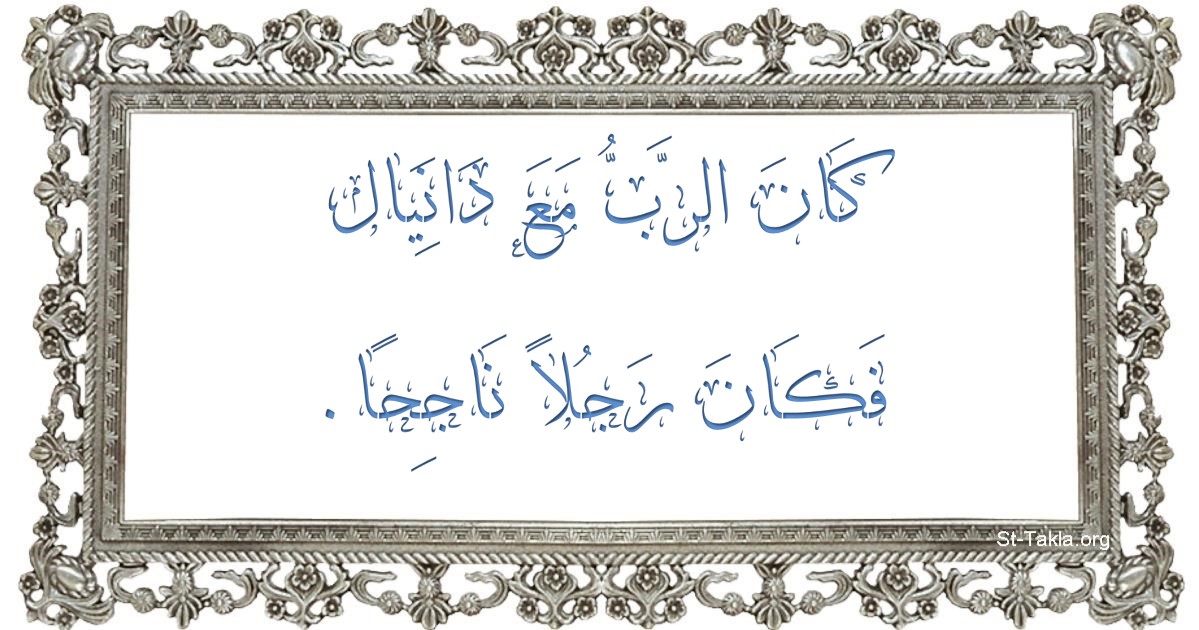 كَانَ الرَّبُّ مَعَ دَانِيَال
فَكَانَ رَجُلاً نَاجِحًا .
St-Takla.org